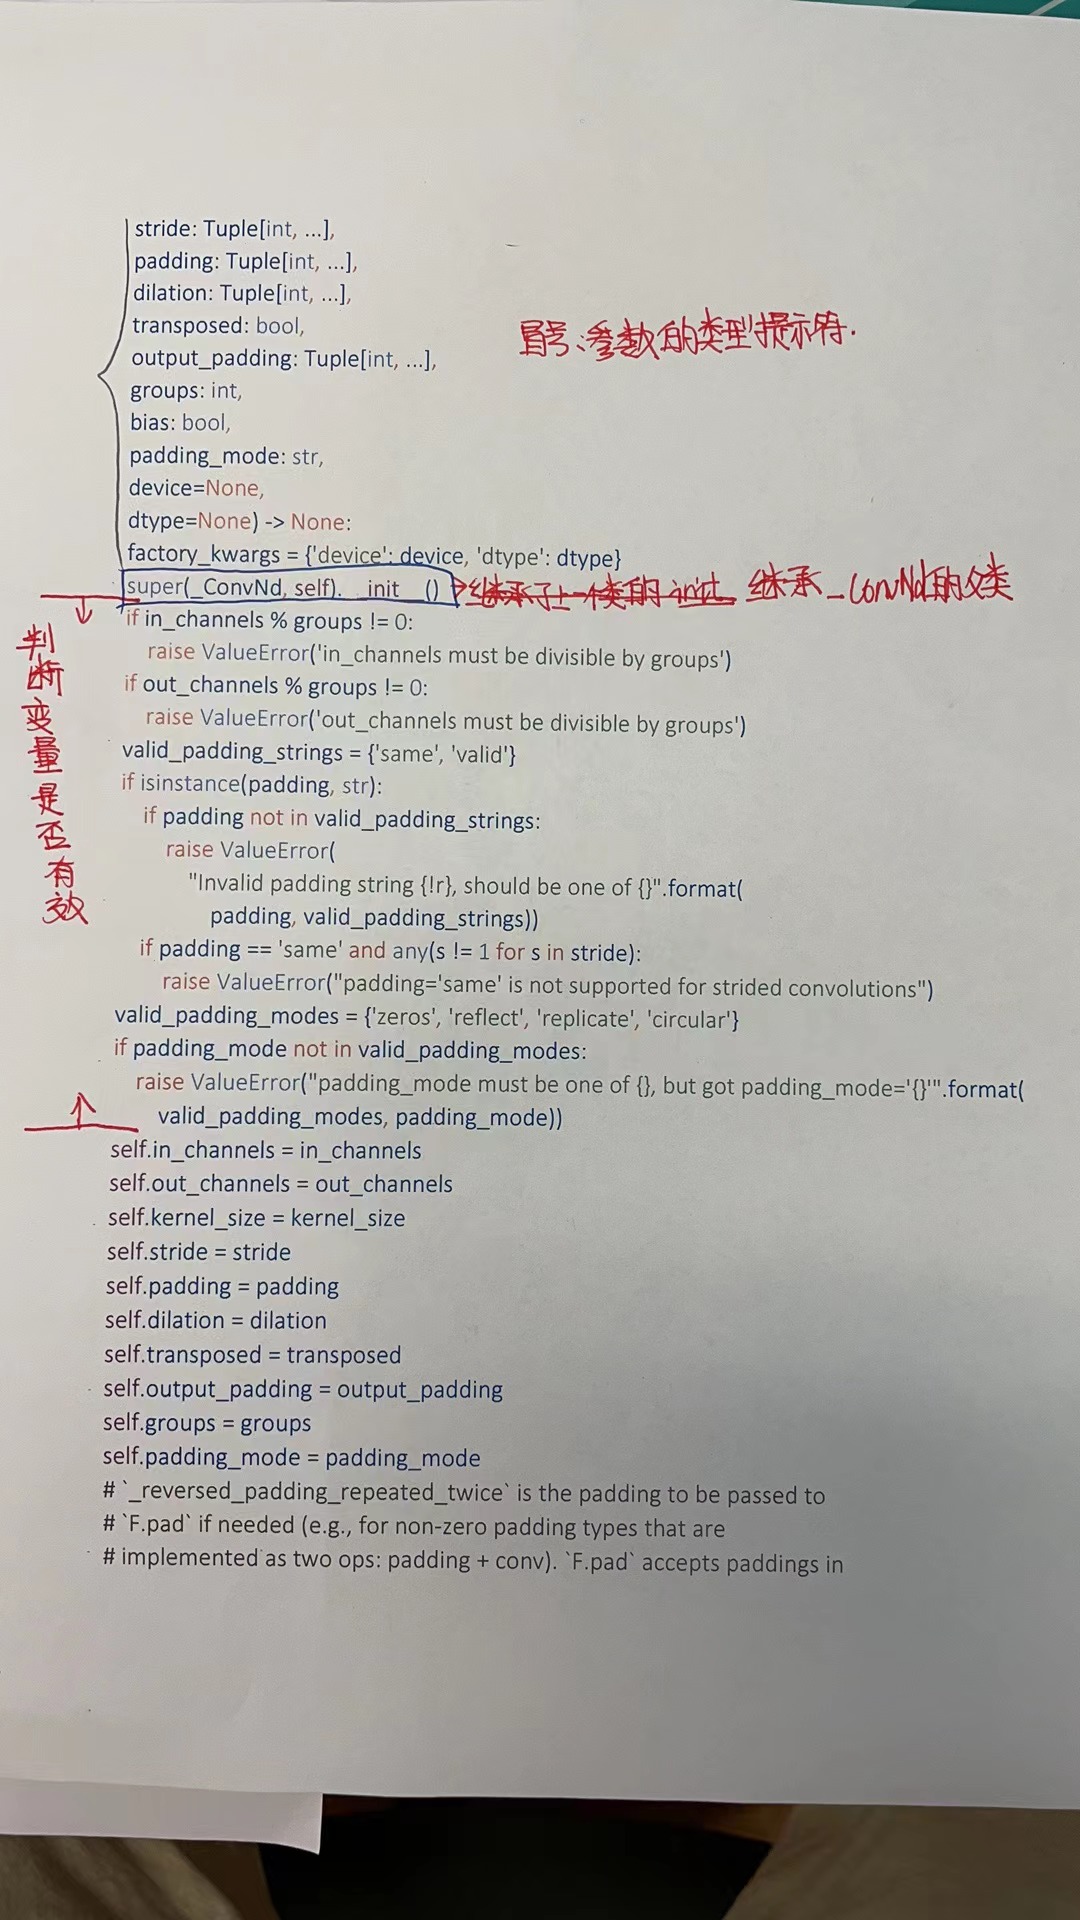 stride: Tuple[int, ...],
padding: Tuple[int, ...],
dilation: Tuple[int, ...],
transposed: bool,
output_padding: Tuple[int, ...],
groups: int,
bias: bool,
padding_mode: str,
device=None,
dtype=None) -> None:
factory_kwargs = {'device': device, 'dtype': dtype}
冒号:参数的类型提示符.
super(_ConvNd, self).__init__() 继承了上一个类的 init 继承_ConvNd的父类
判断变量是否有效
if in_channels % groups != 0:
raise ValueError('in_channels must be divisible by groups')
if out_channels % groups != 0:
raise ValueError('out_channels must be divisible by groups')
valid_padding_strings = {'same', 'valid'}
if isinstance(padding, str):
if padding not in valid_padding_strings:
raise ValueError(
"Invalid padding string {!r}, should be one of {}".format(
padding, valid_padding_strings))
if padding == 'same' and any(s != 1 for s in stride):
raise ValueError("padding='same' is not supported for strided convolutions")
valid_padding_modes = {'zeros', 'reflect', 'replicate', 'circular'}
if padding_mode not in valid_padding_modes:
raise ValueError("padding_mode must be one of {}, but got padding_mode='{}'".format(
valid_padding_modes, padding_mode))
self.in_channels = in_channels
self.out_channels = out_channels
self.kernel_size = kernel_size
self.stride = stride
self.padding = padding
self.dilation = dilation
self.transposed = transposed
self.output_padding = output_padding
self.groups = groups
self.padding_mode = padding_mode
# `_reversed_padding_repeated_twice` is the padding to be passed to
# `F.pad` if needed (e.g., for non-zero padding types that are
# implemented as two ops: padding + conv). `F.pad` accepts paddings in